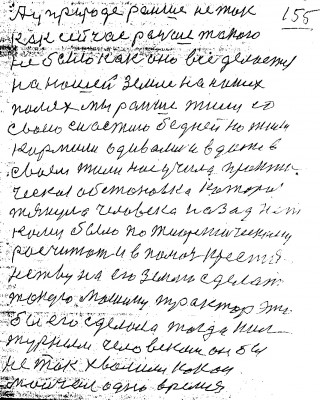 155
А у природе раньше не так
как сейчас раньше такого
не было как оно все делается
на нашей земле на наших
полях мы раньше жили со
своею счастию бедней но жили
кормили одивали и вдоте в
своем жили нас учила практи
ческая обстановка которая
тянула человека назад нет
кому было по теоретическому
росчитать и в помоч кресть
нству на его земле сделать
такую машину трактор это
бы его сделала тогда куль
турным человеком он бы
не так хвалил какой
то одно время